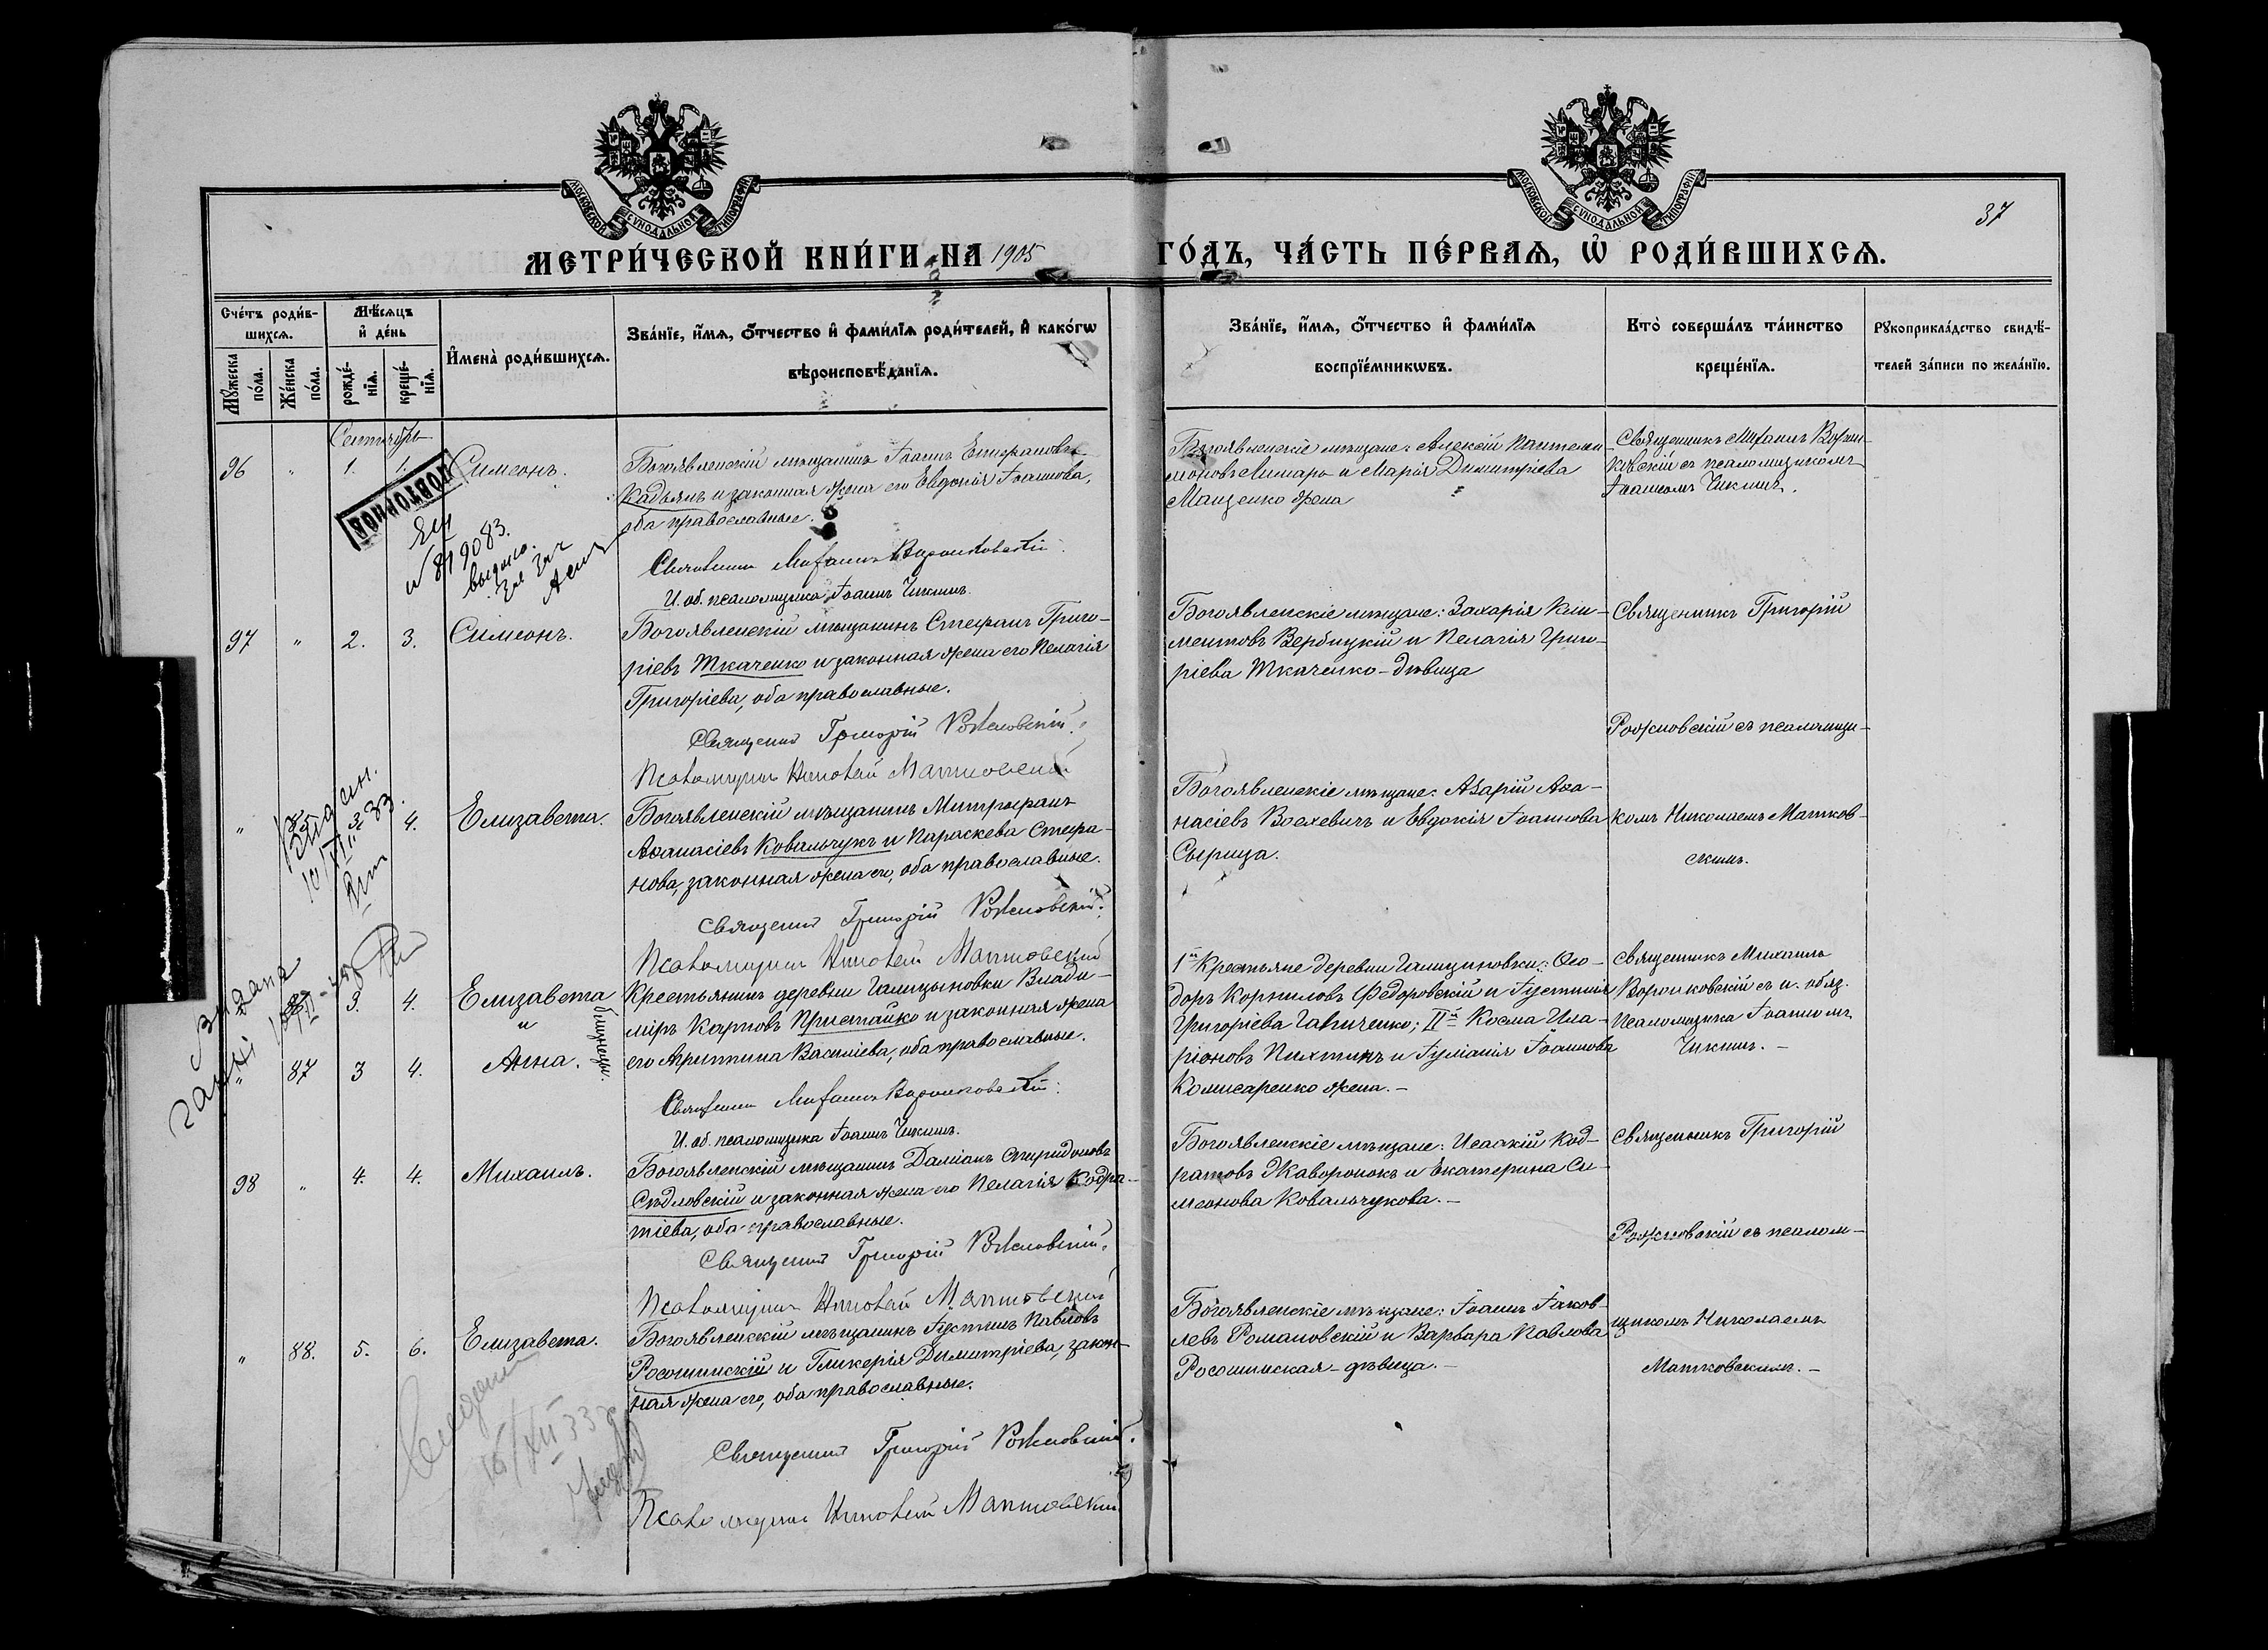 МОСКОВСКОЙ СѴНОДАЛЬНОЙ ТИПОГРАФІИ
МОСКОВСКОЙ СѴНОДАЛЬНОЙ ТИПОГРАФІИ
37
МЕТРИ́ЧЕСКОЙ КНИ́ГИ НА 1905 ГО́ДЪ, ЧА́СТЬ ПЕ́РВАѦ, Ѡ҆ РОДИ́ВШИХСѦ.
Сче́тъ роди́в-
шихсѧ.
Мꙋ́жеска по́ла.
Же́нска по́ла.
Мѣ́сѧцъ
и҆ де́нь
рожде́-
нїѧ.
креще́-
нїѧ.
И҆мена̀ роди́вшихсѧ.
Зва́нїе, и҆́мѧ, ѻ҆́тчество и҆ фами́лїѧ роди́телей, и҆ како́гѡ
вѣроисповѣ́данїѧ.
Зва́нїе, и҆́мѧ, ѻ҆́тчество и҆ фами́лїѧ
воспрїе́мникѡвъ.
Кто̀ соверша́лъ та́инство
креще́нїѧ.
Рꙋкоприкла́дство свидѣ́-
телей за́писи по жела́нїю.
Сентябрь
96 " 1. 1. Симеонъ.
Богоявленскій мѣщанинъ Іоаннъ Епифановъ
Кадьянъ и законная жена его Евдокія Іоаннова,
оба православные.
Священникъ Михаилъ Воронковскій
И. об. псаломщика Іоаннъ Чикинъ.
Богоявленскіе мѣщане: Алексій Пантелеи-
моновъ Лимаръ и Марія Димитріева
Мащенко жена
Священникъ Михаилъ Ворон-
ковскій съ псаломщикомъ
Іоанномъ Чикинъ.
ПОВТОРНОЯ
№ 819083.
97 " 2. 3. Симеонъ.
Богоявленскій мѣщанинъ Стефанъ Григо-
ріевъ Ткаченко и законная жена его Пелагія
Григоріева, оба православные.
Священникъ Григорій Рожновскій.
Псаломщикъ Николай Матковскій
Богоявленскіе мѣщане: Захарія Кли-
ментовъ Вербицкій и Пелагія Григо-
ріева Ткаченко - дѣвица
Священникъ Григорій
Рожновскій съ псаломщи-
" 3. 4. Елизавета.
Богоявленскій мѣщанинъ Митрофанъ
Аѳанасіевъ Ковальчукъ и Параскева Стефа-
нова, законная жена его, оба православные.
Священникъ Григорій Рожновскій.
Псаломщикъ Николай Матковскій
Богоявленскіе мѣщане: Азарій Аѳа-
насіевъ Воехевичъ и Евдокія Іоаннова
Сырица.
комъ Николаемъ Матков-
скимъ.
" 3. 4. Елизавета
и
" 87 3 4. Анна.
близнецы.
Крестьянинъ деревни Галицыновки Влади-
міръ Карповъ Пристайко и законная жена
его Агрипина Василіева, оба православные.
Священникъ Михаилъ Воронковскій
И. об. псаломщика Іоаннъ Чикинъ.
I й Крестьяне деревни Галициновки: Ѳео-
доръ Корниловъ Федоровскій и Іустинія
Григоріева Ганиченко; II й Косма Ила-
ріоновъ Пихтинъ и Іуліанія Іоаннова
Комисаренко жена. -
Священникъ Михаилъ
Воронковскій съ и. обяз.
псаломщика Іоанномъ
Чикинъ. -
98 " 4. 4. Михаилъ.
Богоявленскій мѣщанинъ Даміанъ Спиридоновъ
Сѣдловскій и законная жена его Пелагія Кодра-
тіева, оба православные.
Священникъ Григорій Рожновскій.
Псаломщикъ Николай Матковскій
Богоявленскіе мѣщане: Исаакій Код-
ратовъ Жаворонокъ и Екатерина Си-
меонова Ковальчукова. -
Священникъ Григорій
Рожновскій съ псалом-
" 88. 5. 6. Елизавета.
Богоявленскій мѣщанинъ Іустинъ Павловъ
Росошинскій и Гликерія Димитріева, закон-
ная жена его, оба православные.
Священникъ Григорій Рожновскій.
Псаломщикъ Николай Матковскій
Богоявленскіе мѣщане: Іоаннъ Іаков-
левъ Романовскій и Варвара Павлова
Росошинская - дѣвица. -
щикомъ Николаемъ
Матковскимъ. -
16/XII 33